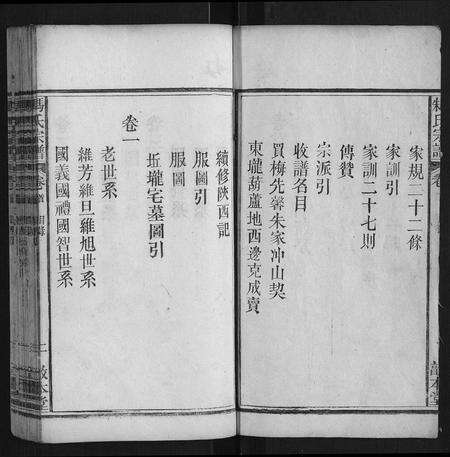 家規二十二條
家訓引
家訓二十七則
傳贊
宗派引
收譜名目
買梅先馨朱家冲山契
東壠葫蘆地西邊克成賣
續修陝西記
服圖引
服圖
坵壠宅墓圖引
卷一
老世系
維芳維旦維旭世系
國義國禮國智世系
敬本堂